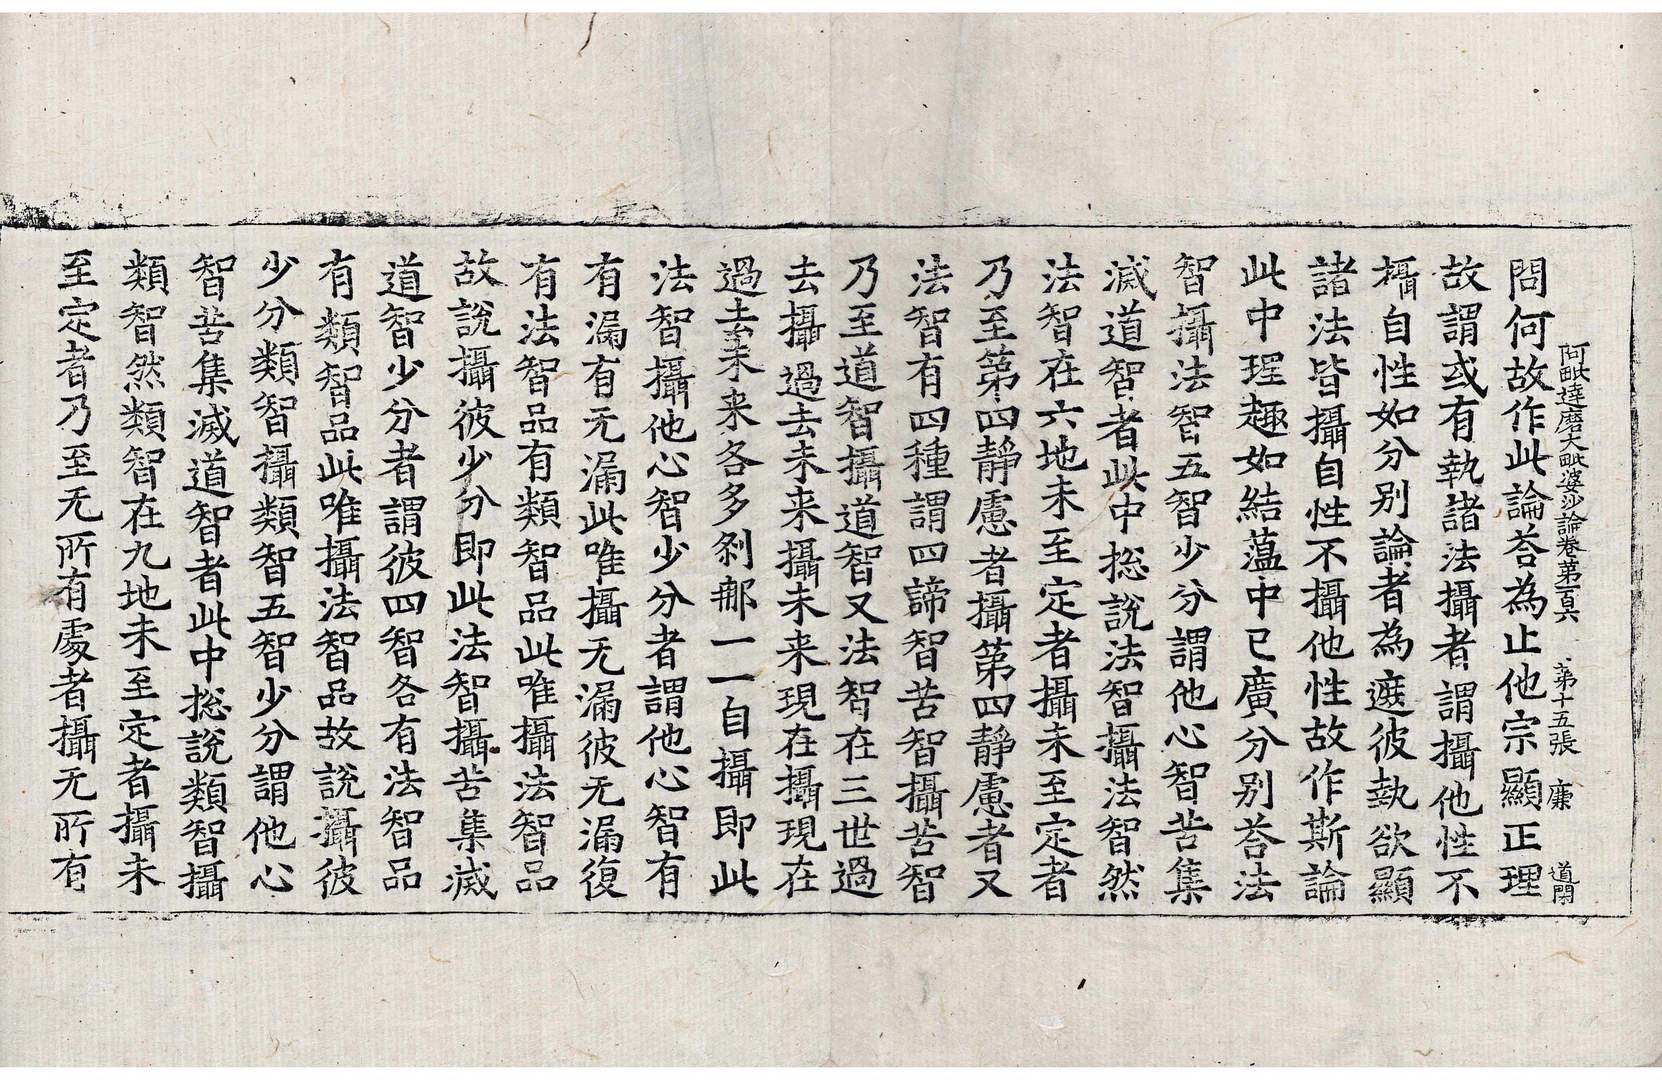 阿毗達磨大毗婆沙論卷第一百六 第十五張 廉 道閑
問何故作此論荅為止他宗顯正理
故謂或有執諸法攝者謂攝他性不
攝自性如分别論者為遮彼執欲顯
諸法皆攝自性不攝他性故作斯論
此中理趣如結蘊中已廣分别荅法
智攝法智五智少分謂他心智苦集
滅道智者此中捴說法智攝法智然
法智在六地未至定者攝未至定者
乃至第四靜慮者攝第四靜慮者又
法智有四種謂四諦智苦智攝苦智
乃至道智攝道智又法智在三世過
去攝過去未来攝未来現在攝現在
過去未来各多剎那一一自攝即此
法智攝他心智少分者謂他心智有
有漏有无漏此唯攝无漏彼无漏復
有法智品有類智品此唯攝法智品
故說攝彼少分即此法智攝苦集滅
道智少分者謂彼四智各有法智品
有類智品此唯攝法智品故說攝彼
少分類智攝類智五智少分謂他心
智苦集滅道智者此中捴說類智攝
類智然類智在九地未至定者攝未
至定者乃至无所有處者攝无所有